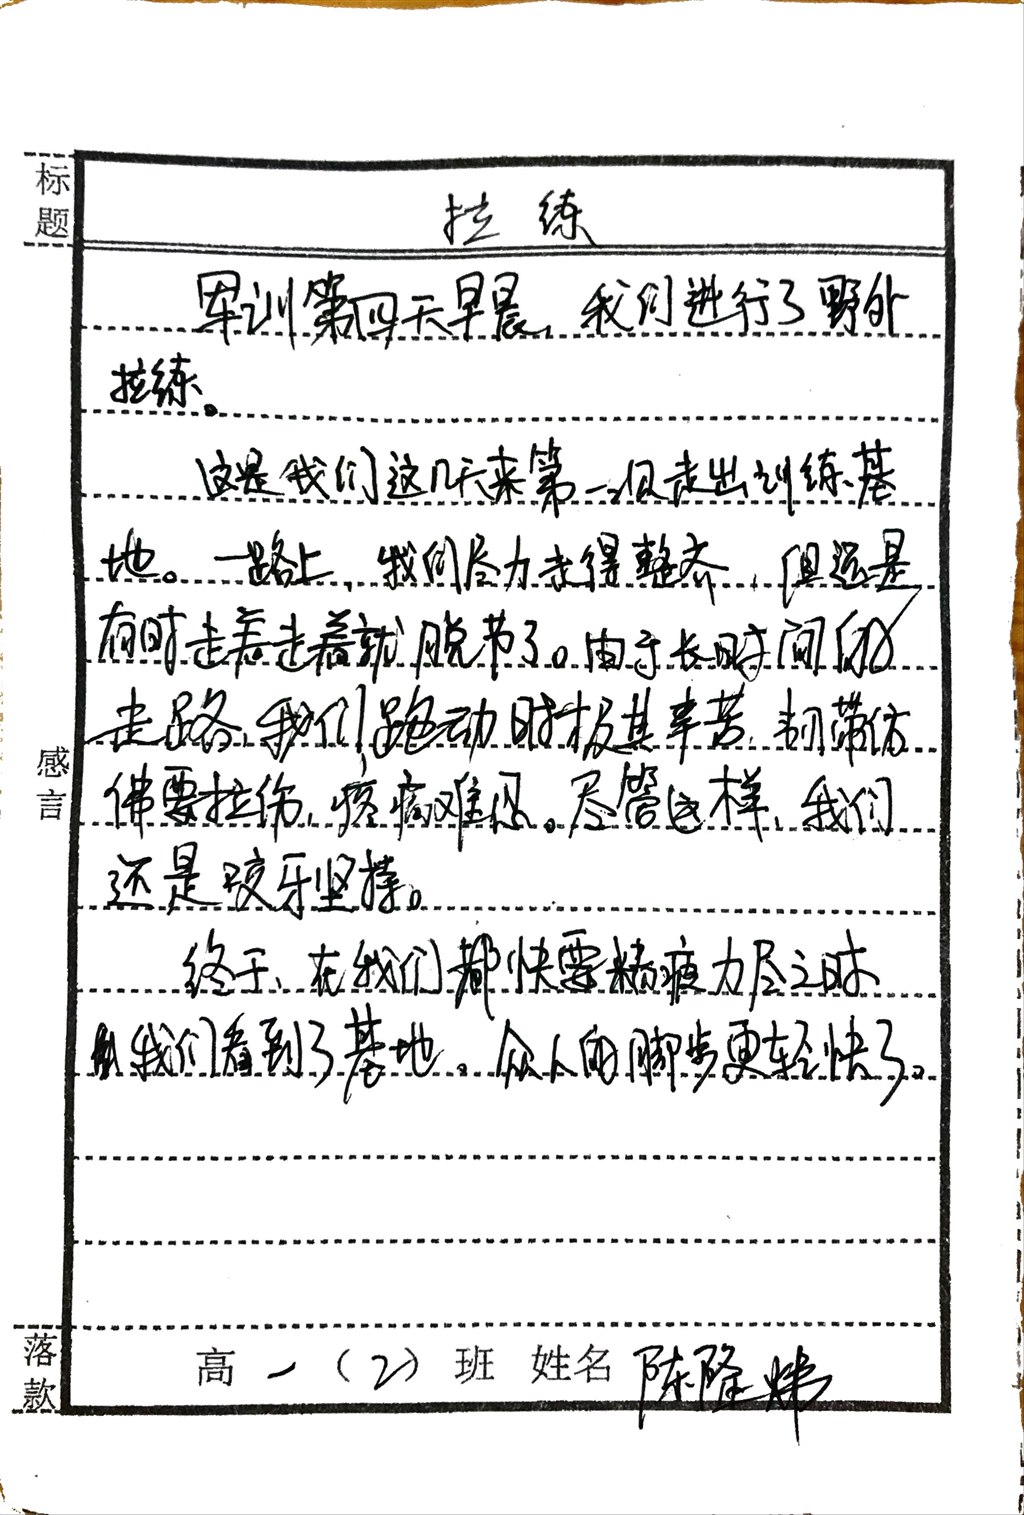 标题
拉练
军训第四天早晨，我们进行了野外
拉练。
这是我们这几天来第一次走出训练基
地。一路上，我们尽力走得整齐，但还是
有时走着走着就脱节了。由于长时间的
走路，我们跑动时极其辛苦，韧带仿
佛要拉伤，疼痛难忍。尽管这样，我们
还是咬牙坚持。
终于，在我们都快要精疲力尽之时
我们看到了基地。众人的脚步更轻快了。
感言
落款
高一（2）班 姓名 陈隆炜